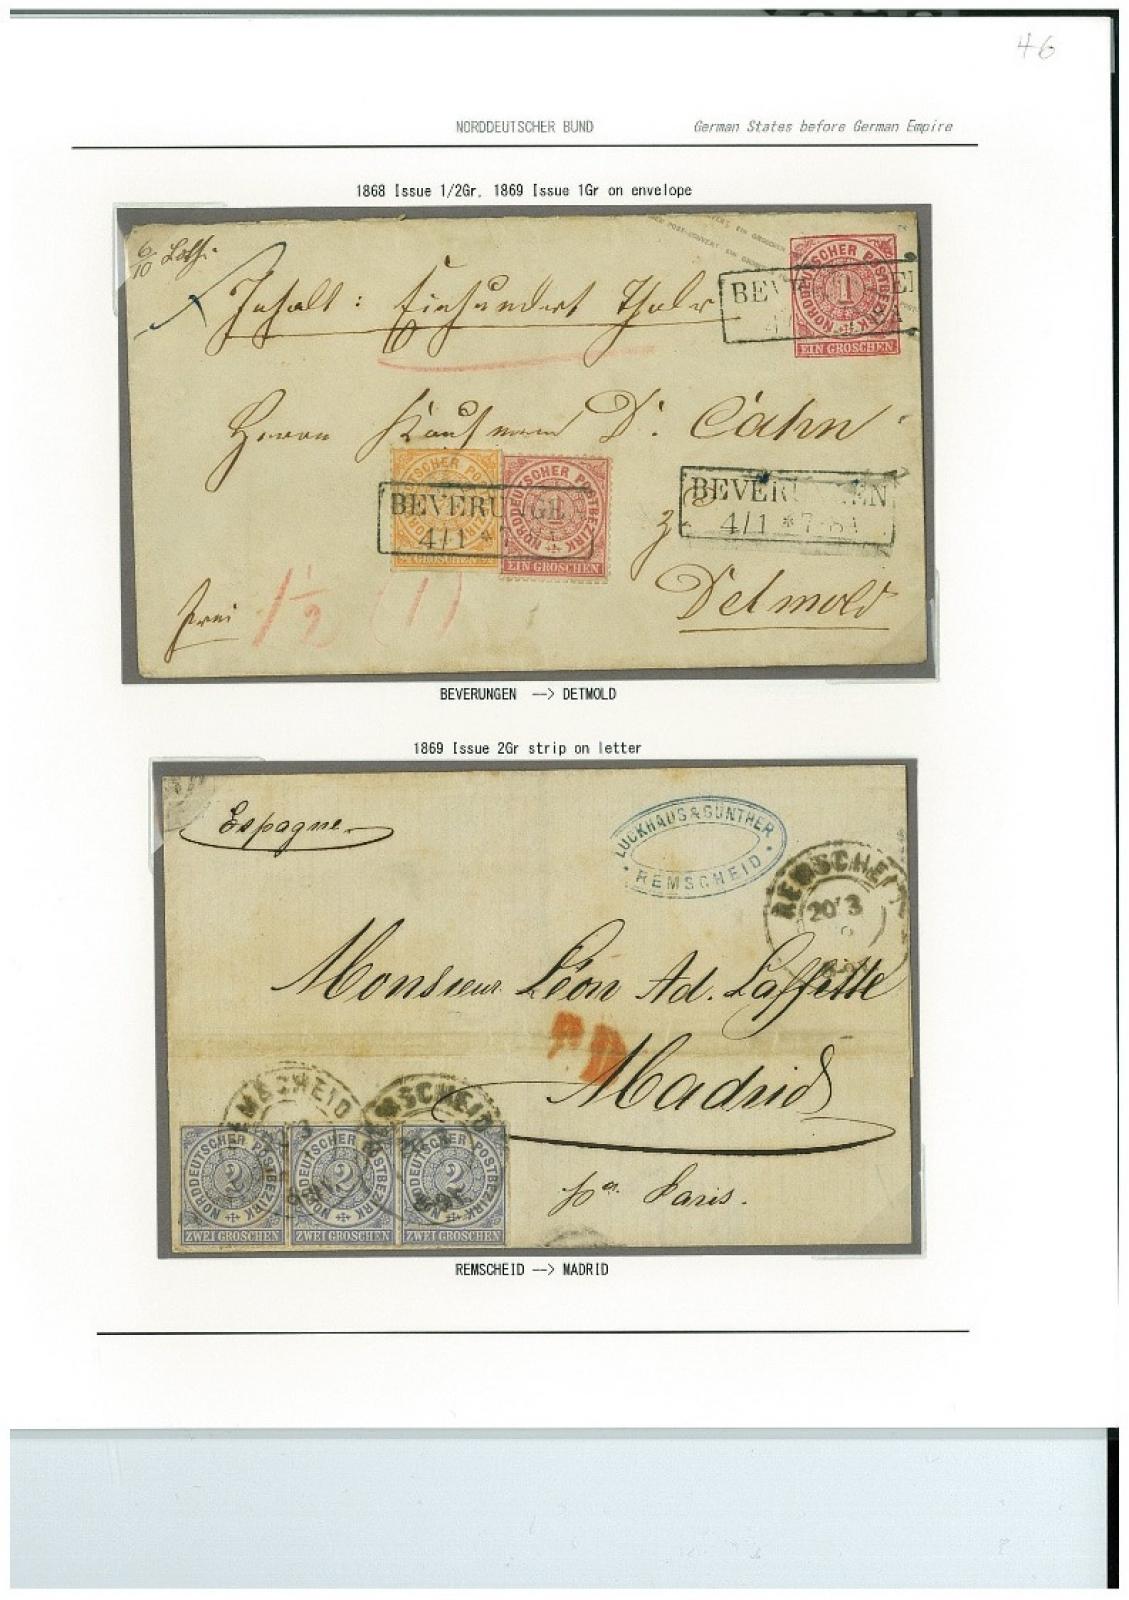 46
NORDDEUTSCHER BUND German States before German Empire
1868 Issue 1/2Gr, 1869 Issue 1Gr on envelope
6/10 Loth
Inhalt: Einhundert Thaler
NORDDEUTSCHER POSTBEZIRK
1
EIN GROSCHEN
Herrn Kaufmann D. Cahn
BEVERUNGEN
4/1 * 7-8A
NORDDEUTSCHER POSTBEZIRK
1
EIN GROSCHEN
BEVERUNGEN
4/1 * 7-8A
Detmold
frei
1 1/2 (1)
BEVERUNGEN --> DETMOLD
1869 Issue 2Gr strip on letter
Espagne
LUCKHAUS & GÜNTHER
REMSCHEID
REMSCHEID
20/3
Monsieur Léon Ad. Laffitte
PD
Madrid
REMSCHEID
REMSCHEID
NORDDEUTSCHER POSTBEZIRK
2
ZWEI GROSCHEN
NORDDEUTSCHER POSTBEZIRK
2
ZWEI GROSCHEN
NORDDEUTSCHER POSTBEZIRK
2
ZWEI GROSCHEN
pa. Paris.
REMSCHEID --> MADRID